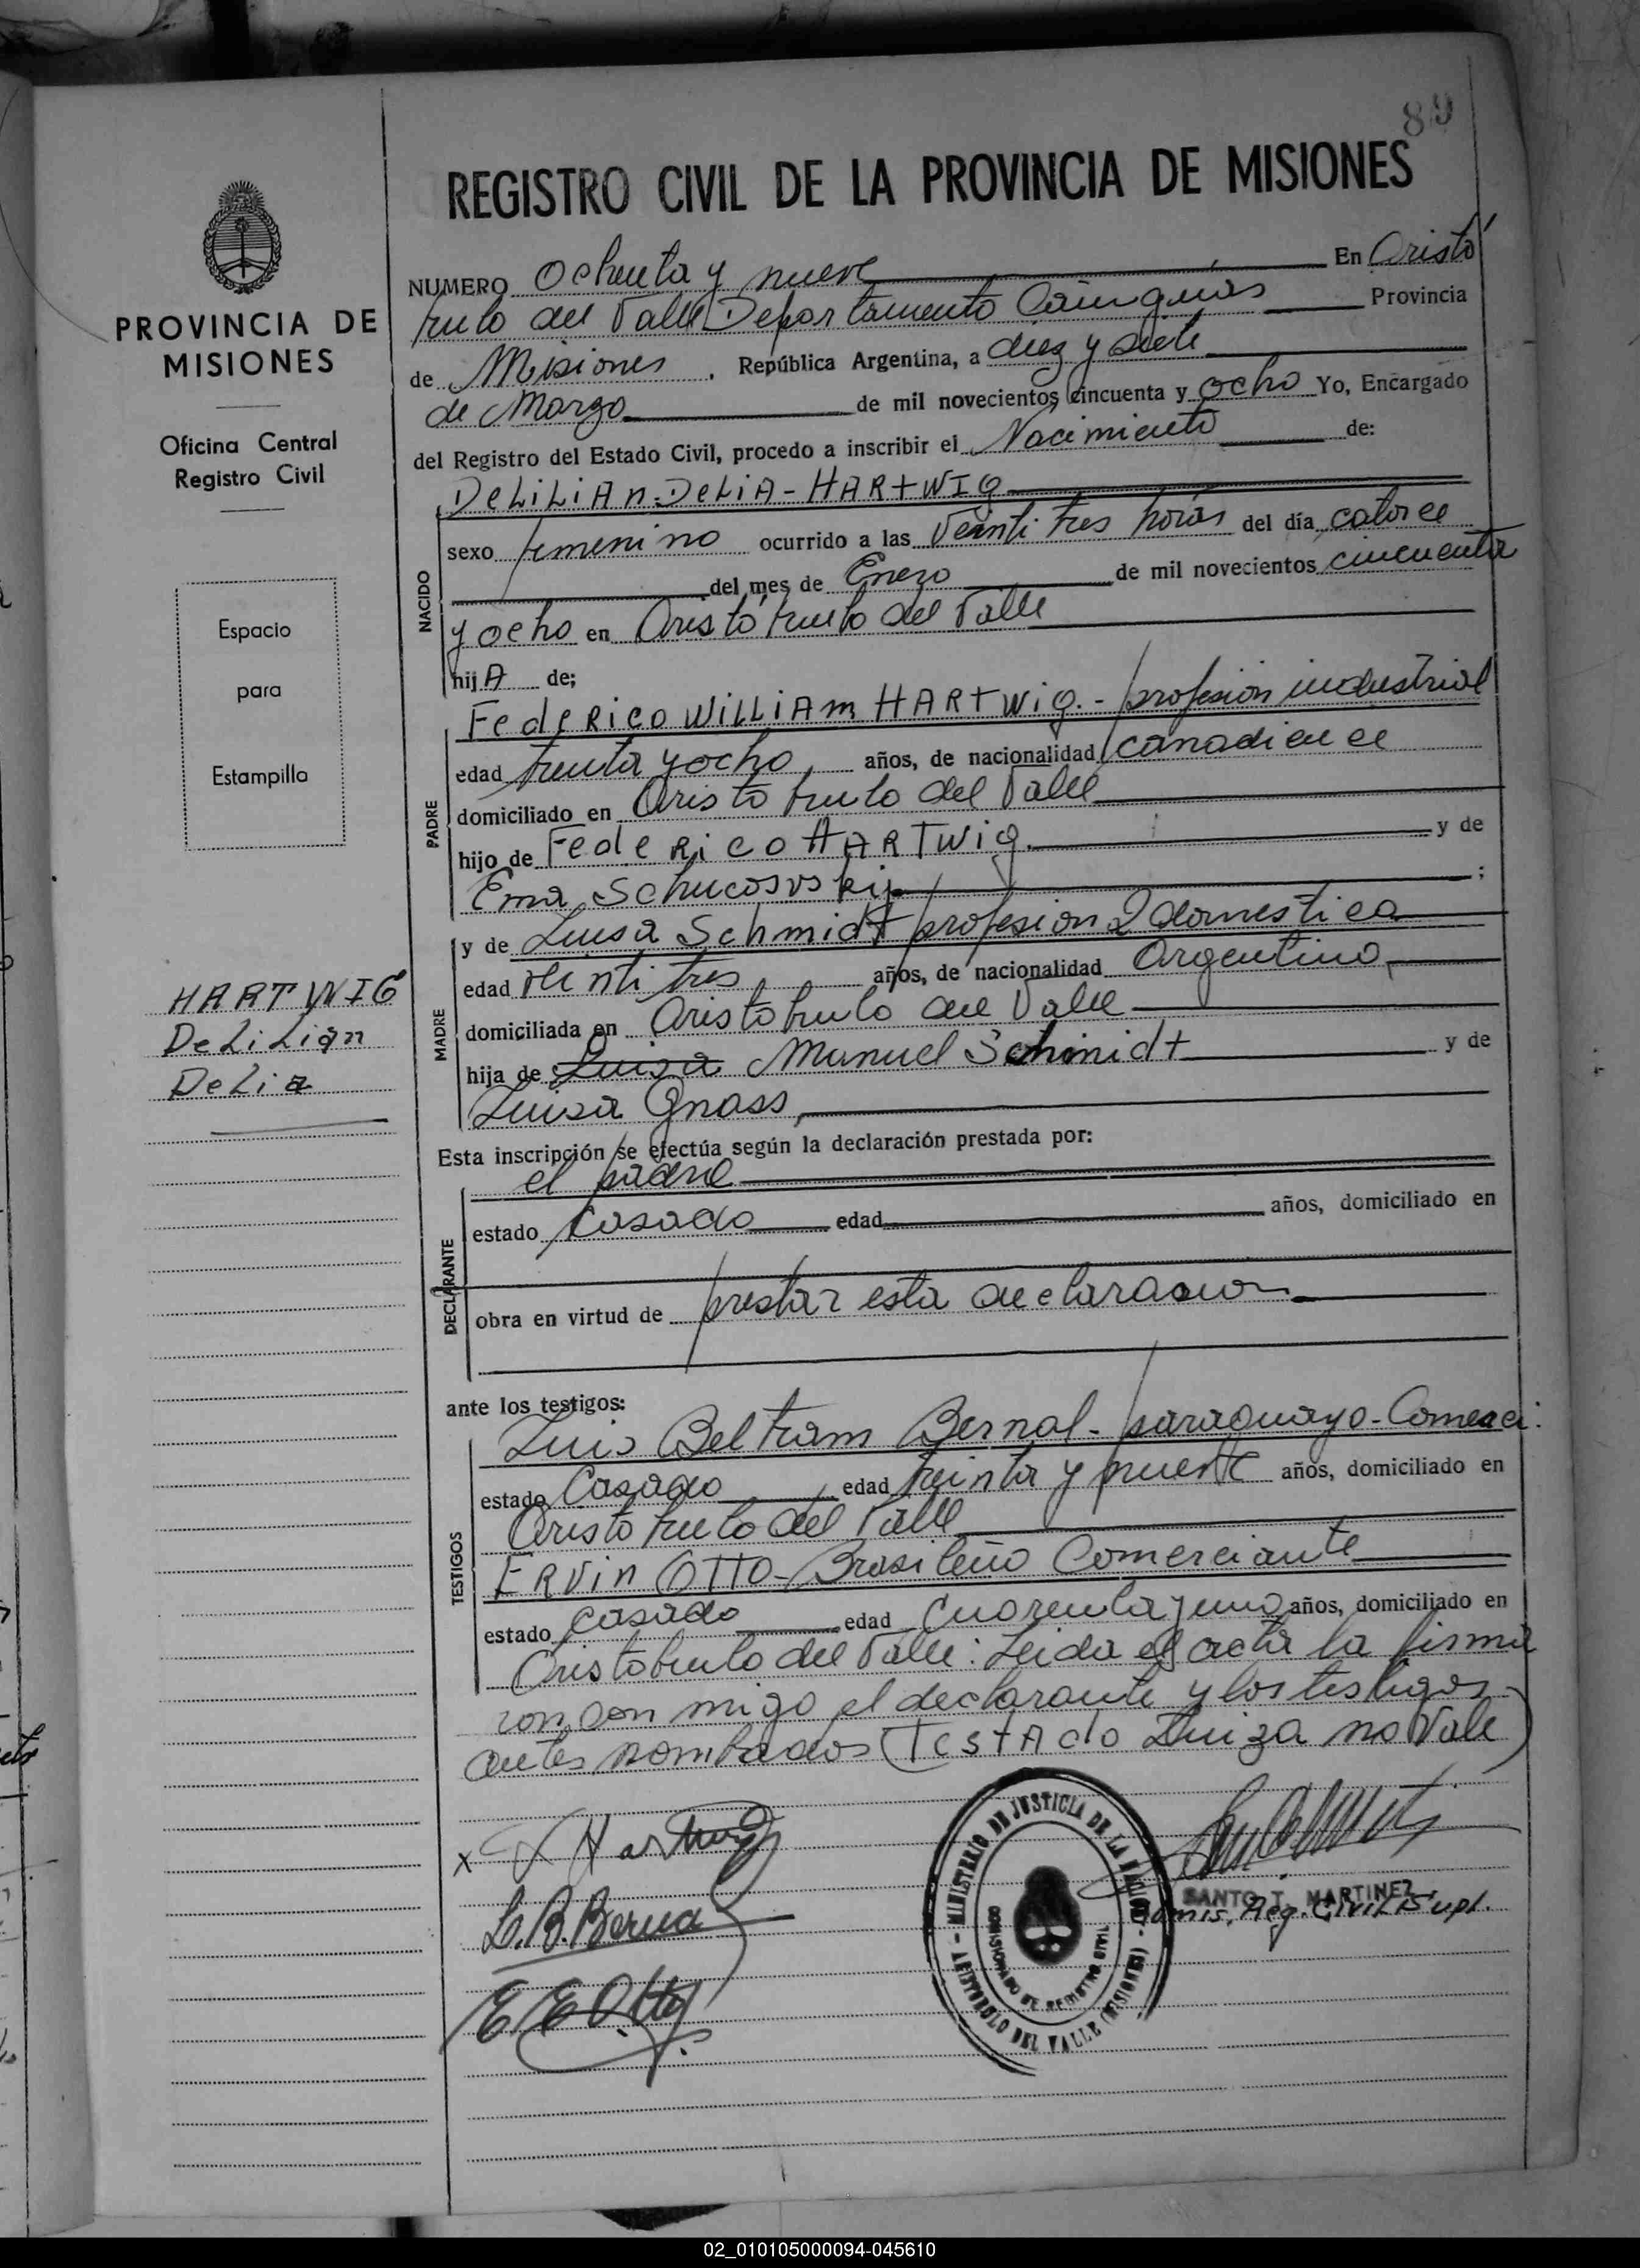 89
REGISTRO CIVIL DE LA PROVINCIA DE MISIONES
PROVINCIA DE
MISIONES
Oficina Central
Registro Civil
Espacio
para
Estampilla
HARTWIG
DeLiLian
DeLia
NUMERO Ochenta y nueve En Aristó
bulo del Valle Departamento Cainguás Provincia
de Misiones, República Argentina, a diez y siete
de Marzo de mil novecientos cincuenta y ocho Yo, Encargado
del Registro del Estado Civil, procedo a inscribir el Nacimiento de:
NACIDO
DeLiLiAn-DeLiA-HARtWIG
sexo femenino ocurrido a las Veinti tres horas del día catorce
del mes de Enero de mil novecientos cincuenta
y ocho en Aristóbulo del Valle
hijA de;
PADRE
FedeRico WiLLiAm HARtWig.- profesión industrial
edad treinta y ocho años, de nacionalidad canadience
domiciliado en Aristobulo del Valle
hijo de FedeRico HARTWig y de
Ema Schucosvskij ;
MADRE
y de Luisa Schmidt profesion Q domestica
edad veintitres años, de nacionalidad Argentina
domiciliada en Aristobulo del Valle
hija de Luiza Manuel Schmidt y de
Luisa Gnass
Esta inscripción se efectúa según la declaración prestada por:
DECLARANTE
el padre
estado Casado edad años, domiciliado en
obra en virtud de prestar esta declaracion
ante los testigos:
TESTIGOS
Luis Beltram Bernal- paraguayo-Comerci:
estado Casado edad treinta y nueve años, domiciliado en
Aristobulo del Valle
ERvin OTTO-Brasileño Comerciante
estado casado edad Cuarenta y uno años, domiciliado en
Aristobulo del Valle: Leida el acta la firma
ron con migo el declarante y los testigos
antes nombrados (TestAdo Luiza no Vale)
x Hartwig
L.B.Bernal
E.E.Otto
MINISTERIO DE JUSTICIA DE LA NACION
COMISIONADO DE REGISTRO CIVIL
ARISTOBULO DEL VALLE (MISIONES)
SANTO T. MARTINEZ
Comis. Reg. Civil Supl.
02_010105000094-045610